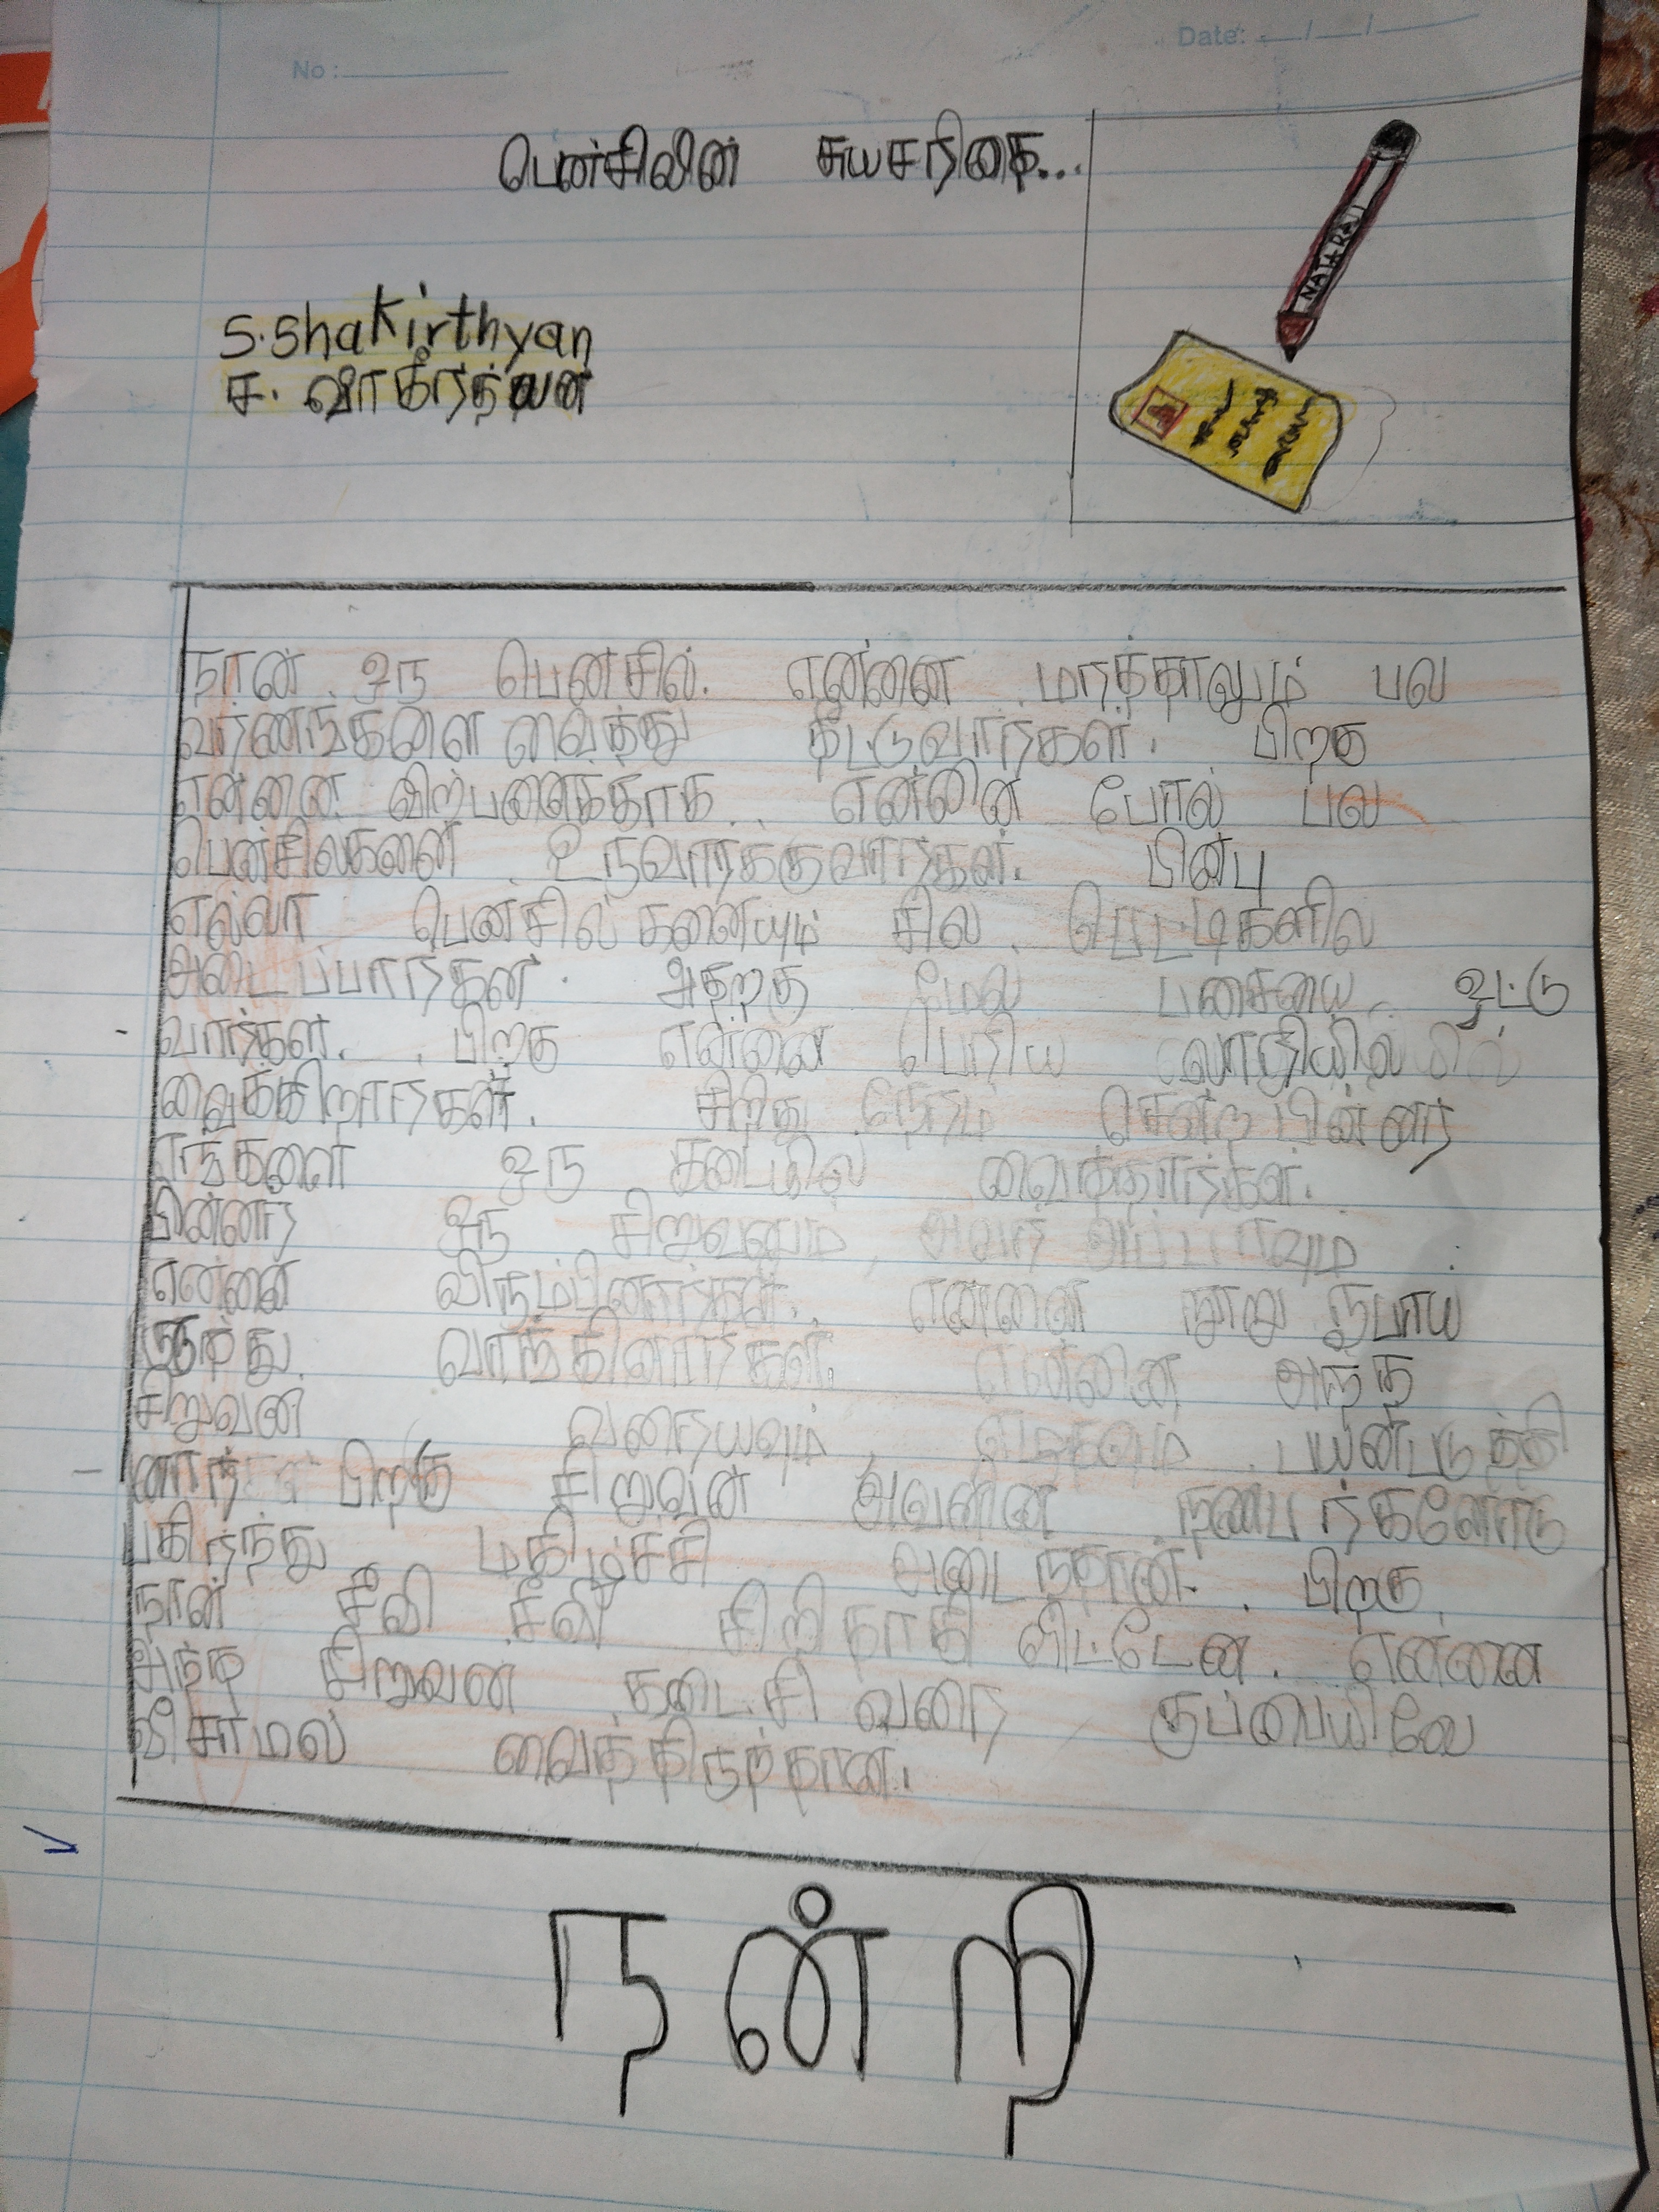 No :
Date: / /
பென்சிலின் சுயசரிதை...
NATARAJ
S.Shakirthyan
ச. ஷாகீர்த்யன்
நான் ஒரு பென்சில். என்னை மரத்தாலும் பல
வர்ணங்களை வைத்து தீட்டுவார்கள். பிறகு
என்னை விற்பனைக்காக என்னை போல் பல
பென்சில்களை உருவாக்குவார்கள். பின்பு
எல்லா பென்சில்களையும் சில பெட்டிகளில்
அடைப்பார்கள். அதற்கு மேல் பசையை ஒட்டு
வார்கள். பிறகு என்னை பெரிய லாரியில்
வைக்கிறார்கள். சிறிது நேரம் சென்ற பின்னர்
எங்களை ஒரு கடையில் வைத்தார்கள்.
பின்னர் ஒரு சிறுவனும், அவர் அப்பாவும்
என்னை விரும்பினார்கள். என்னை நூறு ரூபாய்
வாங்கினார்கள். என்னை அந்த
சிறுவன் வரையவும், எழுதவும் பயன்படுத்தி
னார் பிறகு சிறுவன் அவனின் நண்பர்களோடு
பகிர்ந்து மகிழ்ச்சி அடைந்தான். பிறகு
நான் சீவி சீவி சிறிதாகி விட்டேன். என்னை
அந்த சிறுவன் கடைசி வரை குப்பையிலே
வீசாமல் வைத்திருந்தான்.
நன்றி